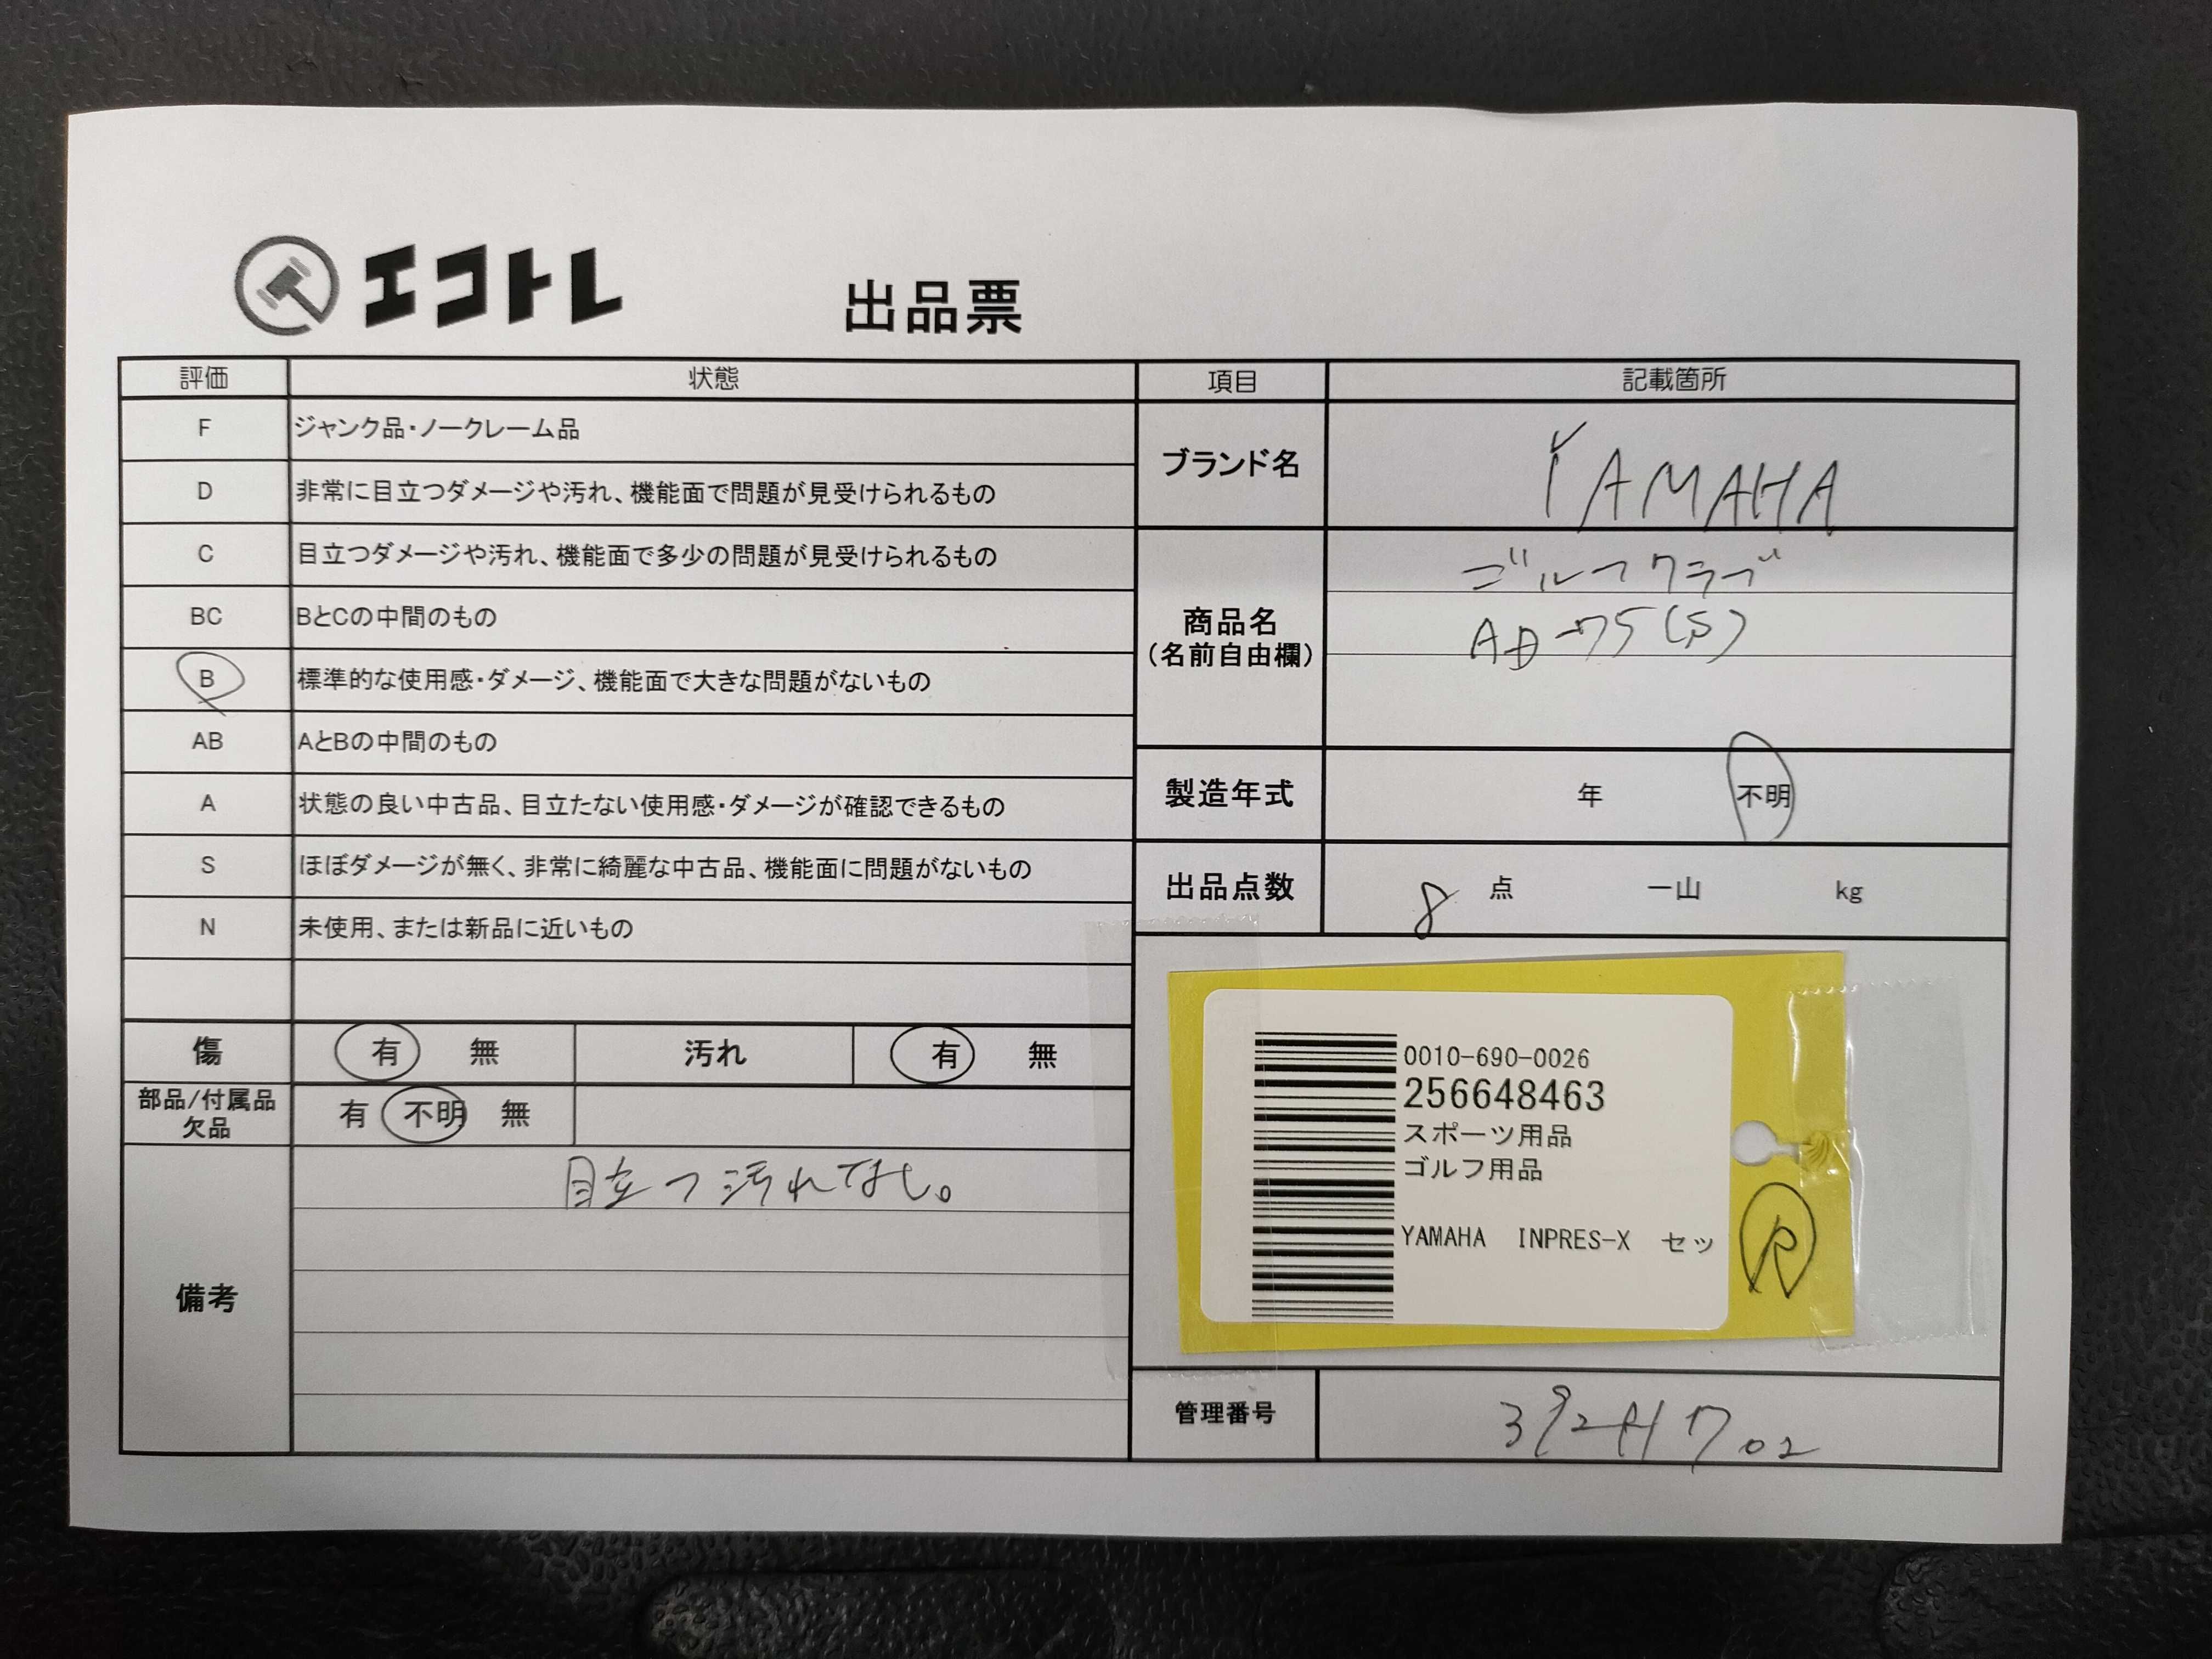 エコトレ
出品票
評価 状態
F ジャンク品・ノークレーム品
D 非常に目立つダメージや汚れ、機能面で問題が見受けられるもの
C 目立つダメージや汚れ、機能面で多少の問題が見受けられるもの
BC BとCの中間のもの
B 標準的な使用感・ダメージ、機能面で大きな問題がないもの
AB AとBの中間のもの
A 状態の良い中古品、目立たない使用感・ダメージが確認できるもの
S ほぼダメージが無く、非常に綺麗な中古品、機能面に問題がないもの
N 未使用、または新品に近いもの
傷 有 無 汚れ 有 無
部品/付属品
欠品
有 不明 無
備考
目立つ汚れなし。
項目 記載箇所
ブランド名 YAMAHA
商品名
(名前自由欄)
ゴルフクラブ
AD-75(S)
製造年式 年 不明
出品点数 8 点 一山 kg
0010-690-0026
256648463
スポーツ用品
ゴルフ用品
YAMAHA INPRES-X セッ
R
管理番号